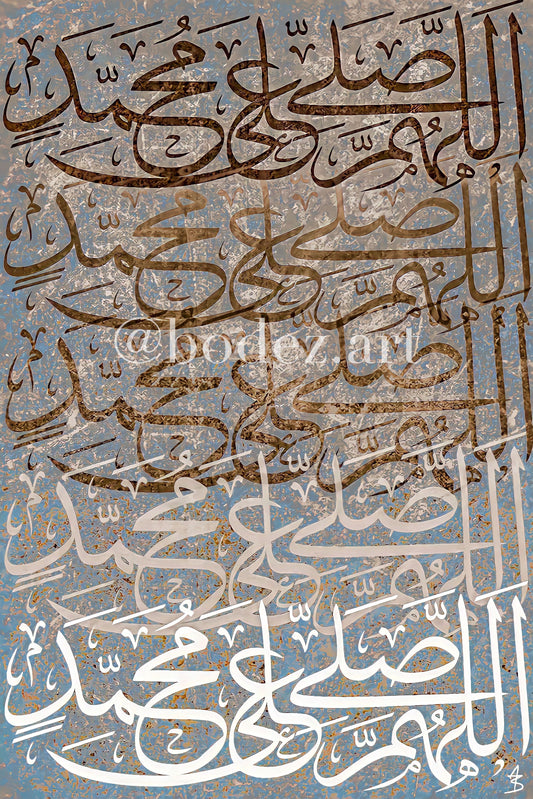 اللَّهُمَّ صَلِّ عَلَى مُحَمَّدٍ
اللَّهُمَّ صَلِّ عَلَى مُحَمَّدٍ
@bodez.art
اللَّهُمَّ صَلِّ عَلَى مُحَمَّدٍ
اللَّهُمَّ صَلِّ عَلَى مُحَمَّدٍ
اللَّهُمَّ صَلِّ عَلَى مُحَمَّدٍ